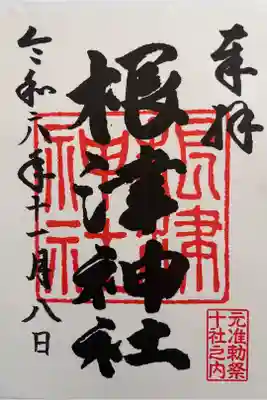 奉拝
根津神社
根津神社
元准勅祭
十社之内
令和六年十一月八日